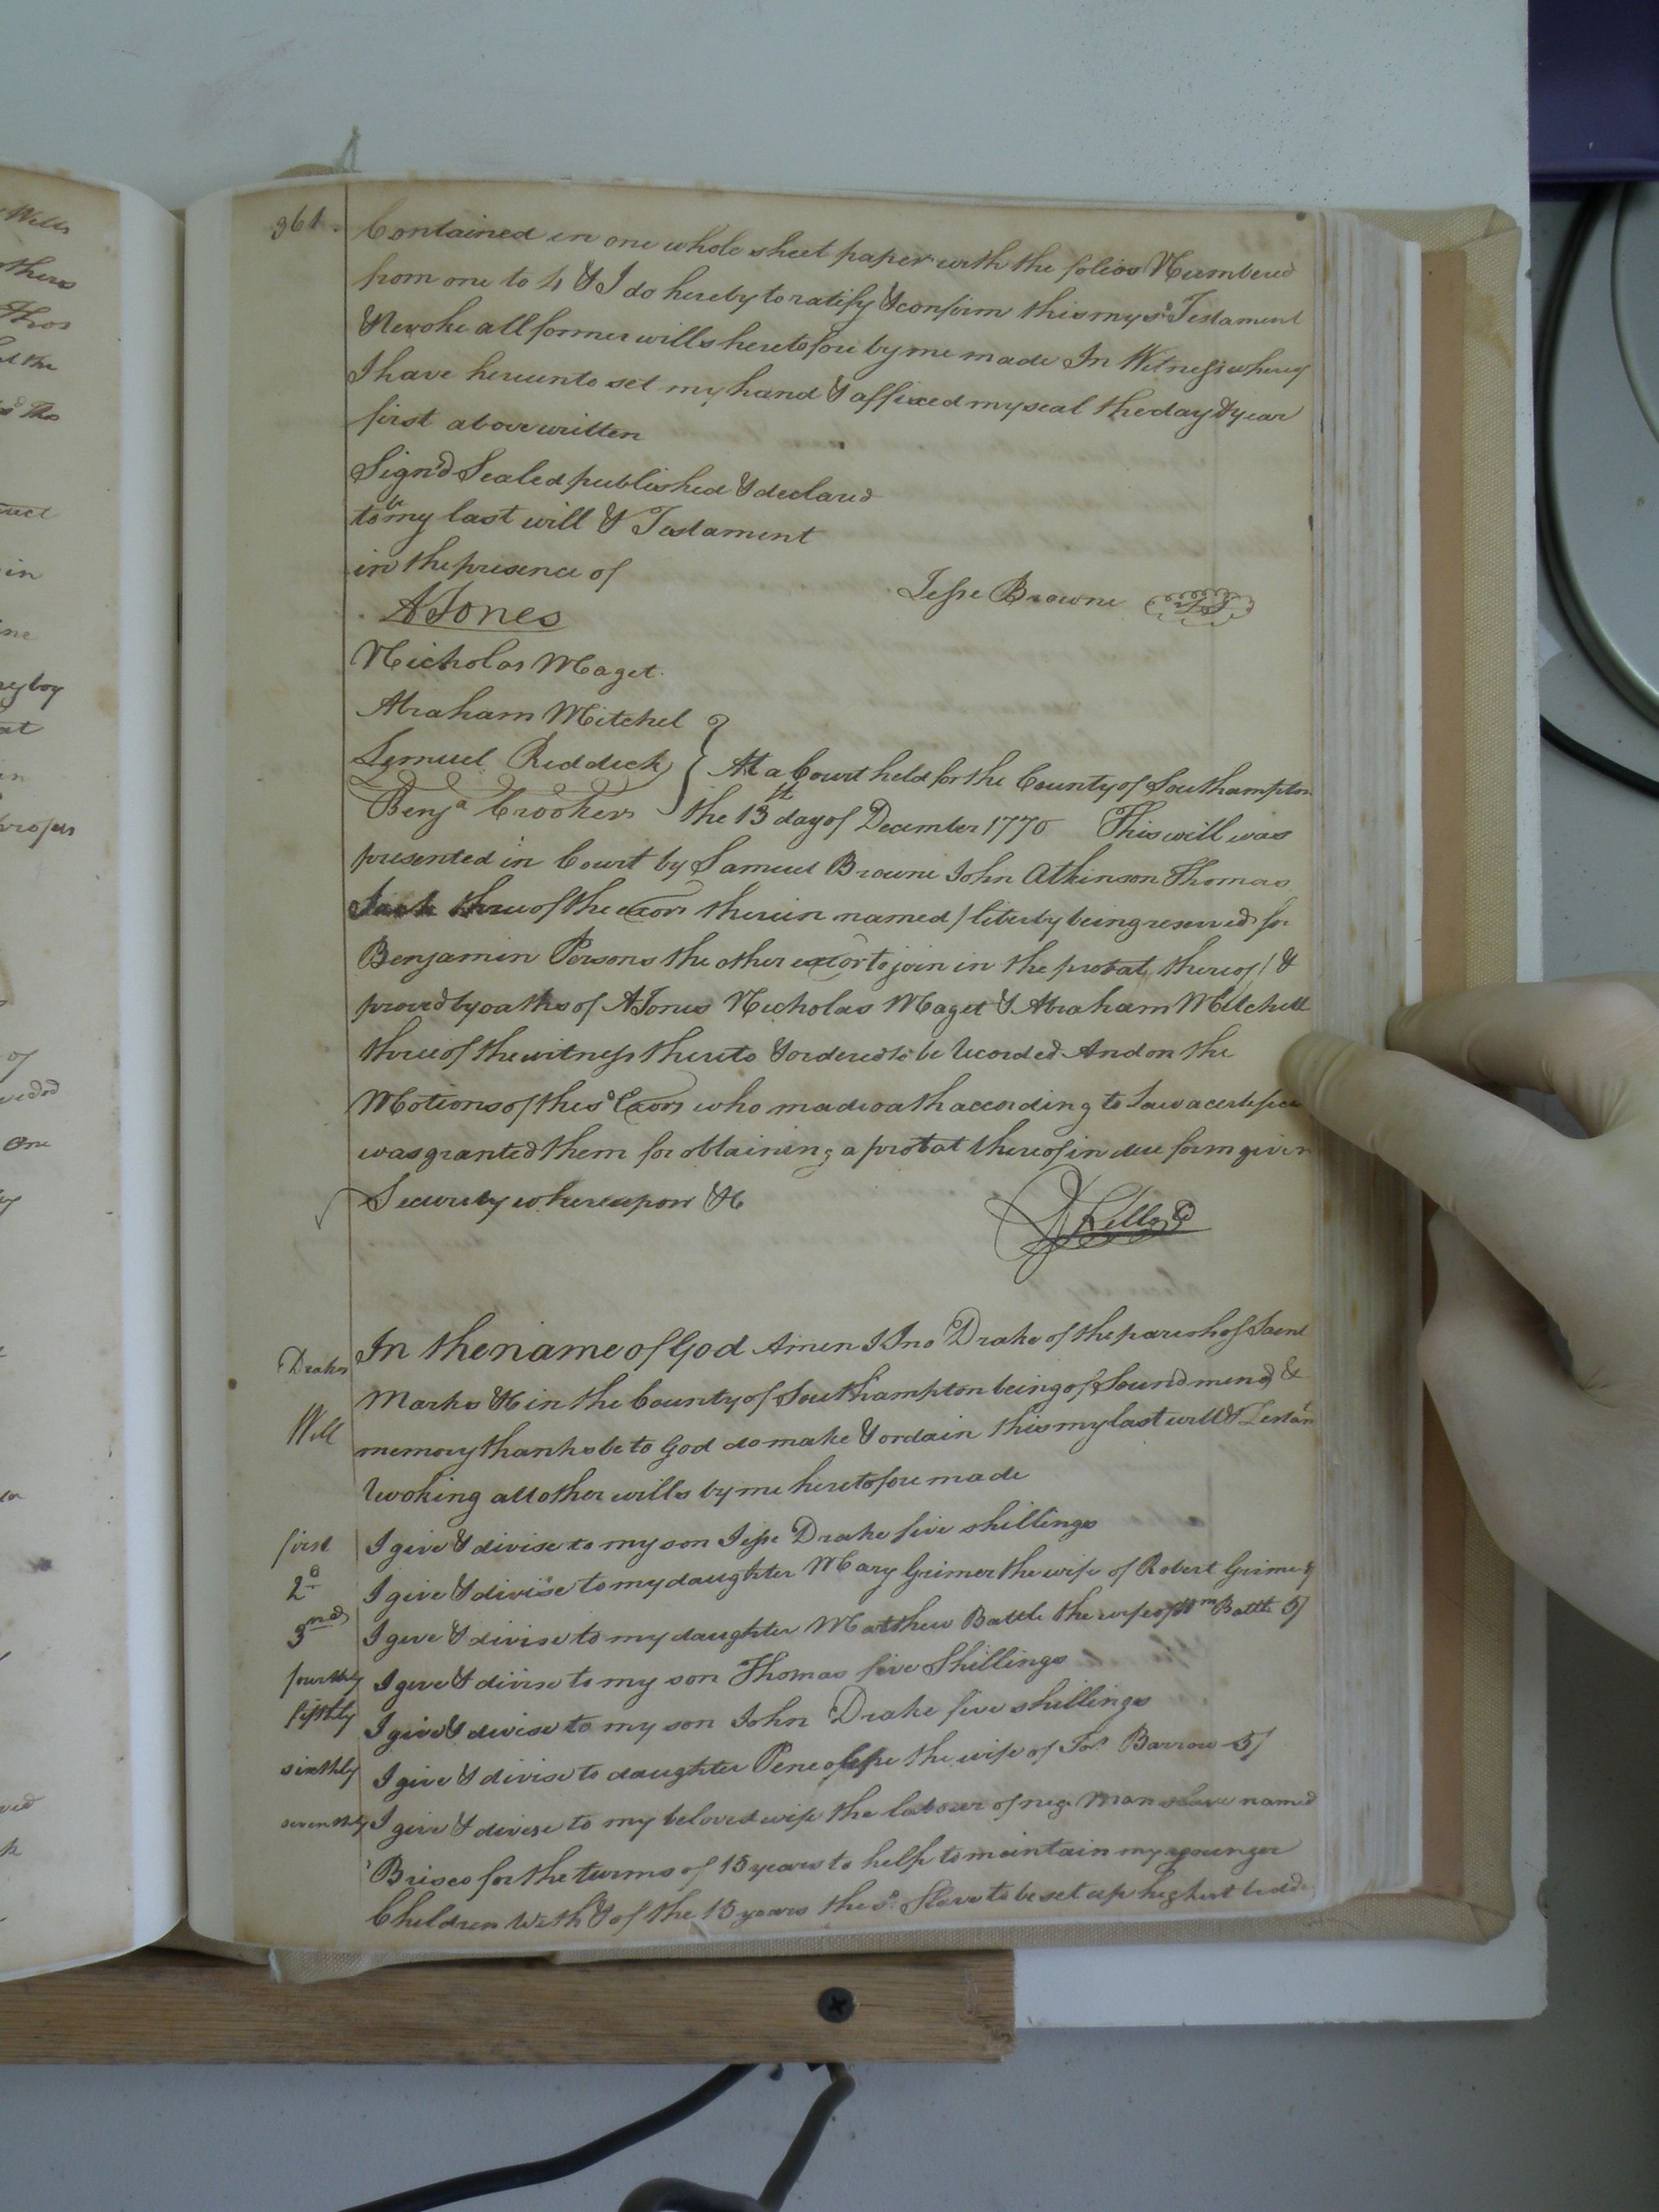 361.
Contained in one whole sheet paper with the folios Numbered
from one to 4 & I do hereby to ratify & confirm this my sd Testament
& Revoke all former wills heretofore by me made In Witness whereof
I have hereunto set my hand & affixed my seal the day & year
first above written
Sign'd Sealed published & declared
to be my last will & Testament
in the presence of
Jesse Browne LS
A Jones
Nicholas Maget
Abraham Mitchel
Lemuel Riddick
Benja Crookers
At a Court held for the County of Southampton
the 13th day of December 1770 This will was
presented in Court by Samuel Browne John Atkinson Thomas
three of the Exors therein named / liberty being reserved for
Benjamin Persons the other exctor to join in the probat thereof / &
proved by oaths of A Jones Nicholas Maget & Abraham Mitchell
three of the witness thereto & ordered to be recorded And on the
Motions of the sd Exors who made oath according to Law a certificate
was granted them for obtaining a probat thereof in due form given
Security whereupon &c
Kello
Drakes
Will
In the name of God Amen I Jno Drake of the parish of Saint
Marks &c in the County of Southampton being of Sound mind &
memory thanks be to God do make & ordain this my last will & Testamt
revoking all other wills by me heretofore made
first I give & divise to my son Jesse Drake five shillings
2d I give & divise to my daughter Mary Grimer the wife of Robert Grimer
3rd I give & divise to my daughter Matthew Battle the wife of Wm Battle 5/
fourthly I give & divise to my son Thomas five Shillings
fifthly I give & divise to my son John Drake five shillings
sixthly I give & divise to daughter Penelope the wife of Barrow 5/
seventhly I give & divise to my beloved wife the labour of neg. man slave named
Brisco for the turms of 15 years to help to maintain my younger
Children With & of the 15 years the sd. Slave to be set up highest bidder